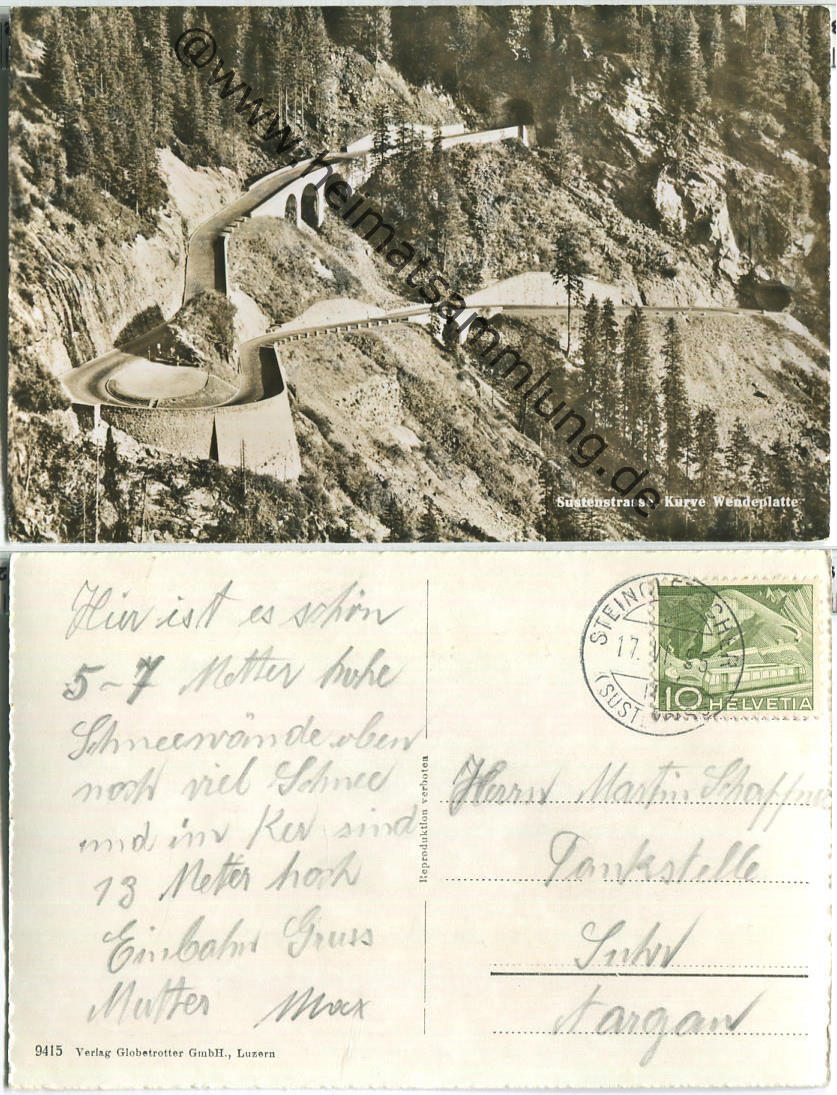 @www.heimatsammlung.de
Sustenstrasse Kurve Wendeplatte
Hier ist es schön
5-7 Metter hohe
Schneewände oben
noch viel Schnee
und im Ker sind
13 Meter hoch
Einbahn Gruss
Mutter Max
9415 Verlag Globetrotter GmbH., Luzern
Reproduktion verboten
STEIN
17.
(SUST
10 HELVETIA
Herrn Martin Schaffner
Tankstelle
Suhr
Aargau